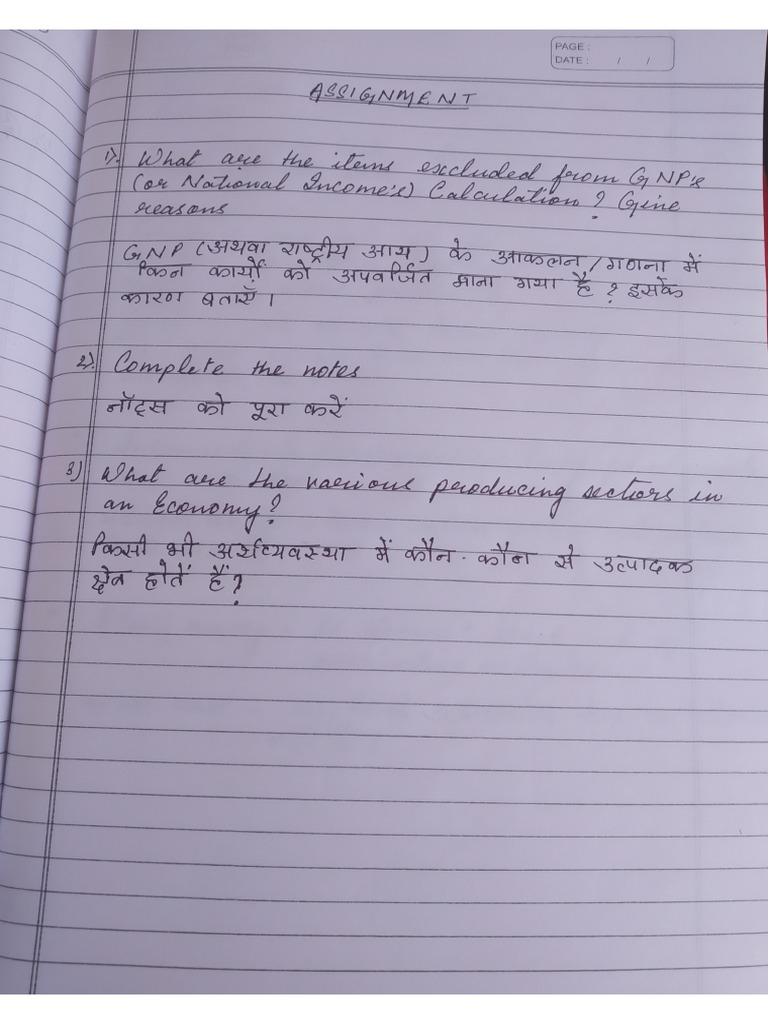 PAGE :
DATE : / /
ASSIGNMENT
1). What are the items excluded from GNP's
(or National Income's) Calculation? Give
reasons
GNP (अथवा राष्ट्रीय आय) के आकलन/गणना में
किन कार्यों को अपवर्जित माना गया है? इसके
कारण बताएँ।
2). Complete the notes
नॉट्स को पूरा करें
3) What are the various producing sectors in
an Economy?
किसी भी अर्थव्यवस्था में कौन-कौन से उत्पादक
क्षेत्र होतें हैं?